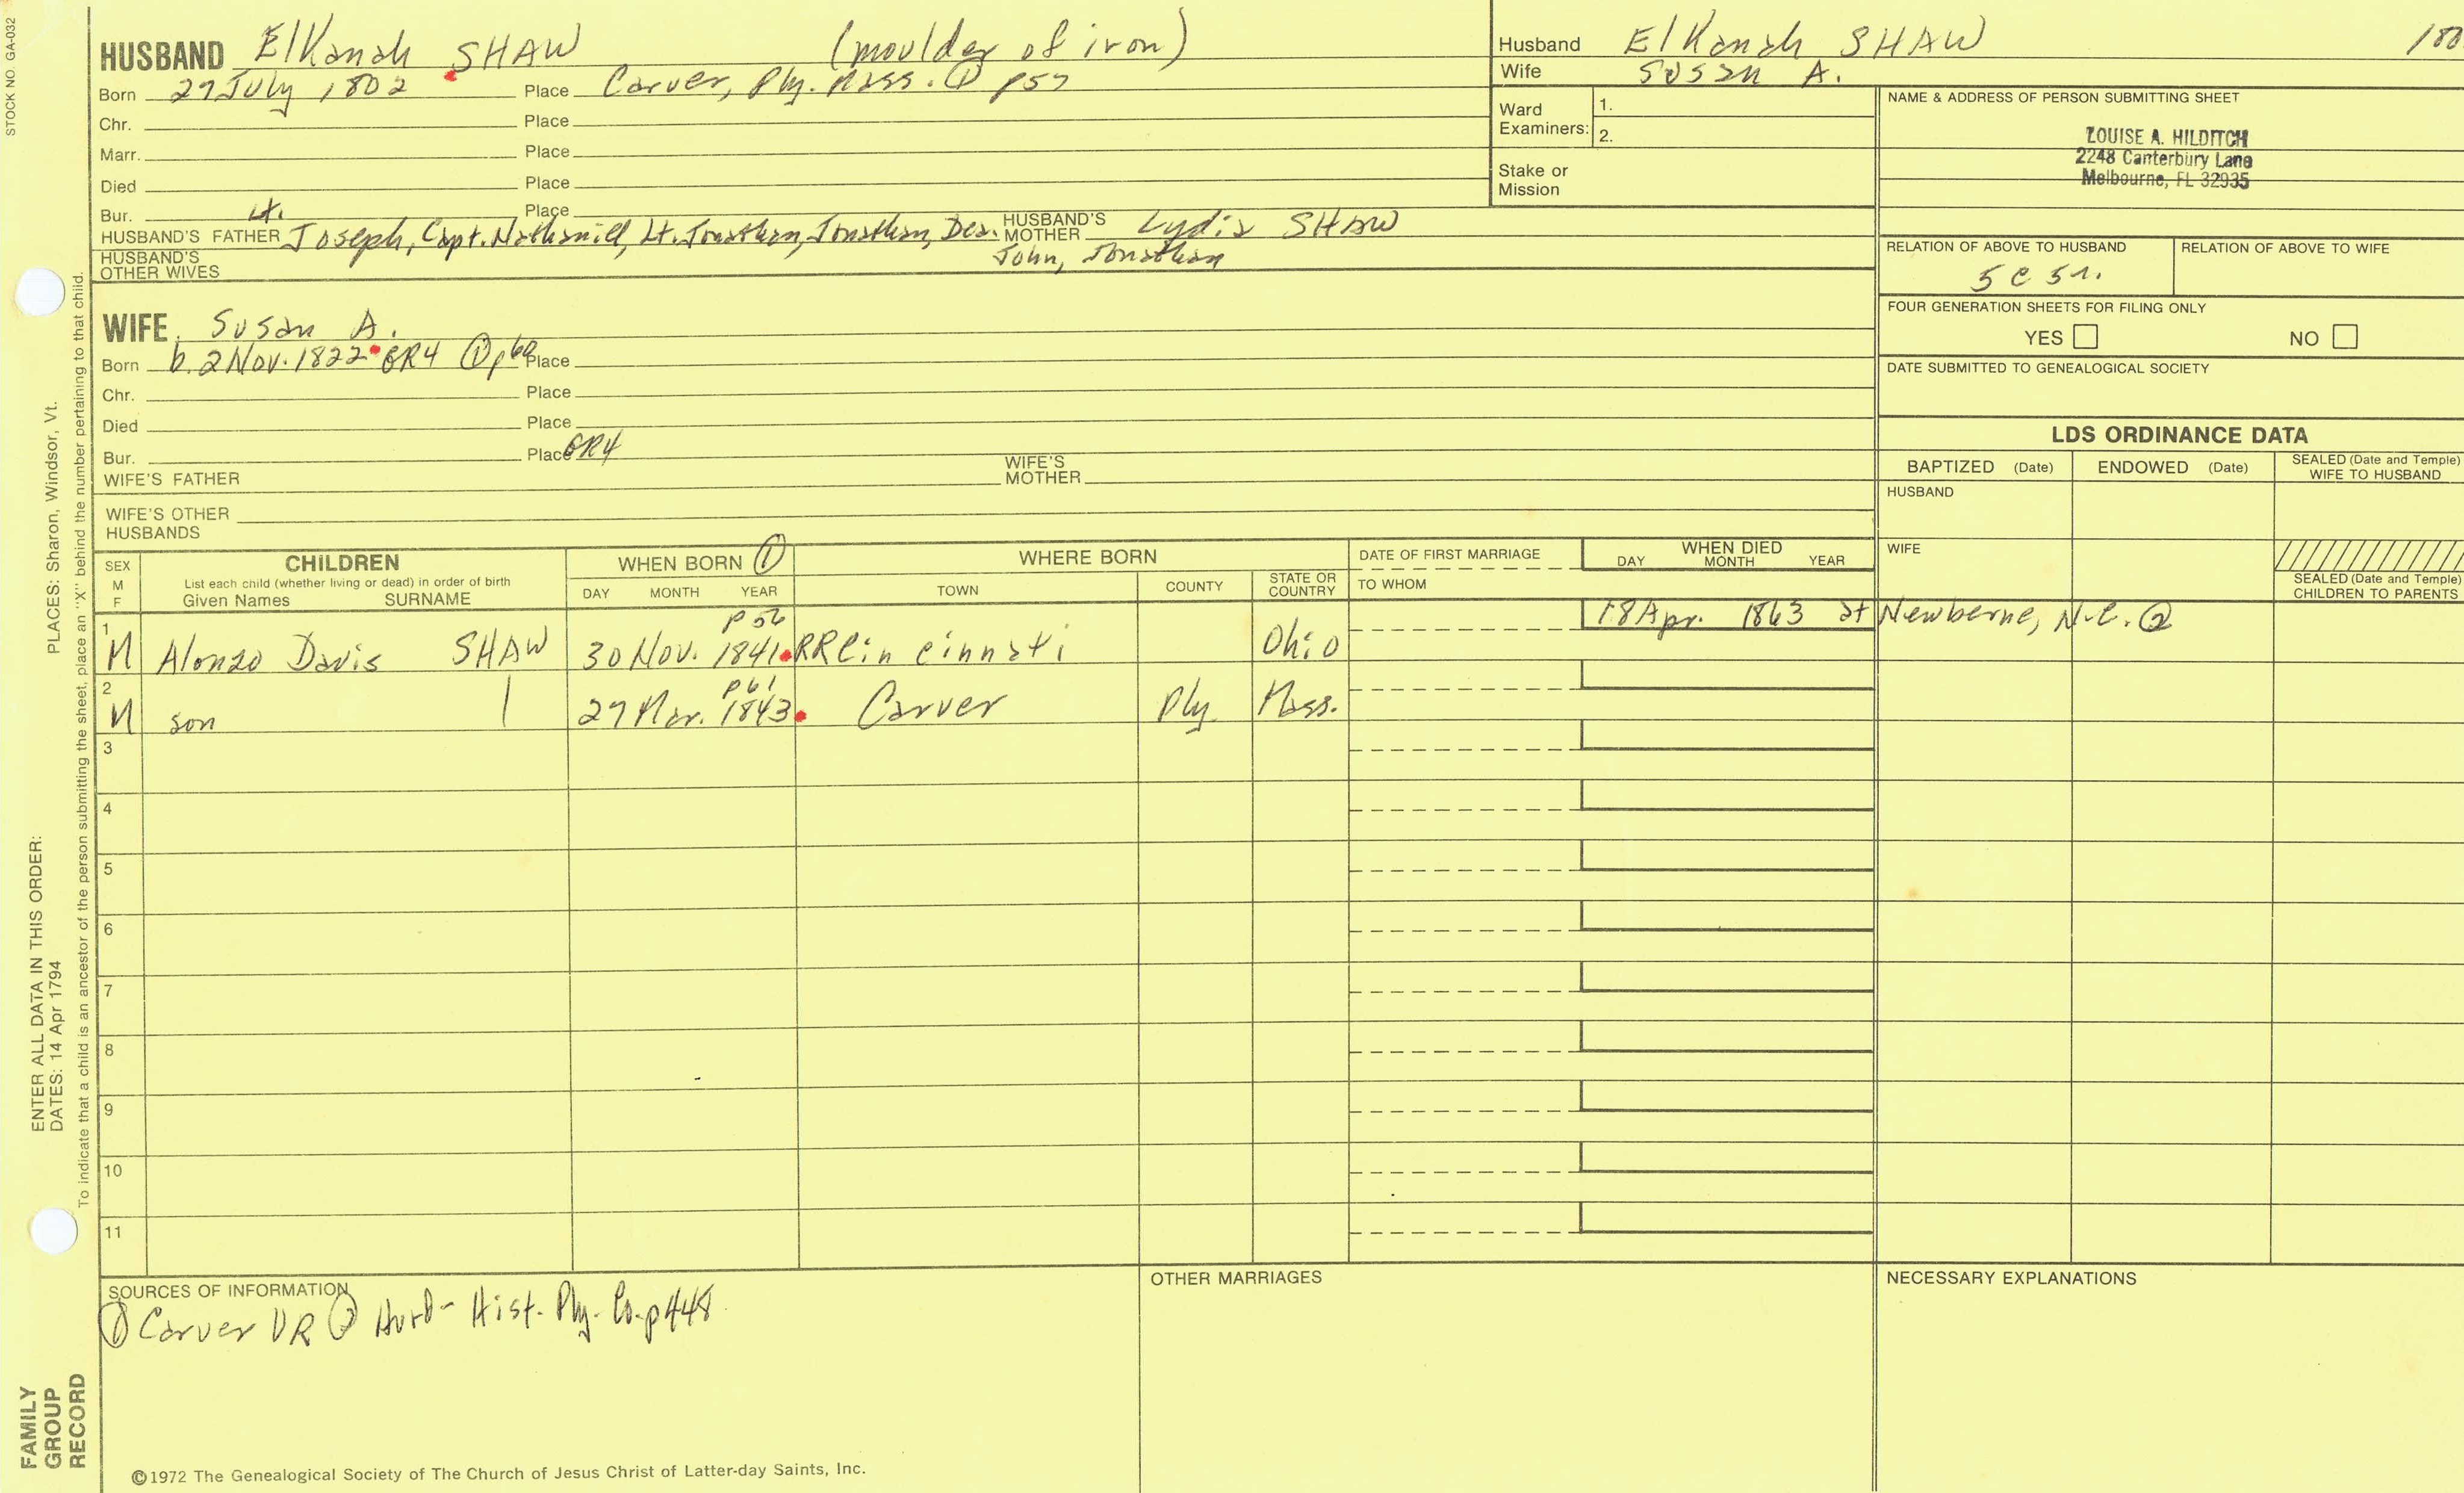 STOCK NO. GA-032
HUSBAND Elkanah SHAW (moulder of iron)
Born 27 July 1802 Place Carver, Ply. Mass. ① p57
Chr. Place
Marr. Place
Died Place
Bur. Place
Lt.
HUSBAND'S FATHER Joseph, Capt. Nathaniel, Lt. Jonathan, Jonathan, Dea. HUSBAND'S MOTHER Lydia SHAW
John, Jonathan
HUSBAND'S OTHER WIVES
WIFE Susan A.
Born b. 2 Nov. 1822 GR4 ① p60 Place
Chr. Place
Died Place
Bur. Place GR4
WIFE'S FATHER WIFE'S MOTHER
WIFE'S OTHER HUSBANDS
Husband Elkanah SHAW 180
Wife Susan A.
Ward Examiners: 1.
2.
Stake or Mission
NAME & ADDRESS OF PERSON SUBMITTING SHEET
LOUISE A. HILDITCH
2248 Canterbury Lane
Melbourne, FL 32935
RELATION OF ABOVE TO HUSBAND RELATION OF ABOVE TO WIFE
5c 5r.
FOUR GENERATION SHEETS FOR FILING ONLY
YES NO
DATE SUBMITTED TO GENEALOGICAL SOCIETY
LDS ORDINANCE DATA
BAPTIZED (Date) ENDOWED (Date) SEALED (Date and Temple) WIFE TO HUSBAND
HUSBAND
WIFE
SEALED (Date and Temple) CHILDREN TO PARENTS
SEX M F CHILDREN
List each child (whether living or dead) in order of birth
Given Names SURNAME
WHEN BORN ①
DAY MONTH YEAR
WHERE BORN
TOWN COUNTY STATE OR COUNTRY
DATE OF FIRST MARRIAGE
TO WHOM
WHEN DIED
DAY MONTH YEAR
p56
1 M Alonzo Davis SHAW 30 Nov. 1841 RR Cincinnati Ohio 18 Apr. 1863 at Newberne, N.C. ②
p61
2 M son | 27 Mar. 1843 Carver Ply. Mass.
3
4
5
6
7
8
9
10
11
SOURCES OF INFORMATION
① Carver VR ② Hurd- Hist. Ply. Co. p448
OTHER MARRIAGES
NECESSARY EXPLANATIONS
©1972 The Genealogical Society of The Church of Jesus Christ of Latter-day Saints, Inc.
FAMILY GROUP RECORD
ENTER ALL DATA IN THIS ORDER:
DATES: 14 Apr 1794 PLACES: Sharon, Windsor, Vt.
To indicate that a child is an ancestor of the person submitting the sheet, place an "X" behind the number pertaining to that child.